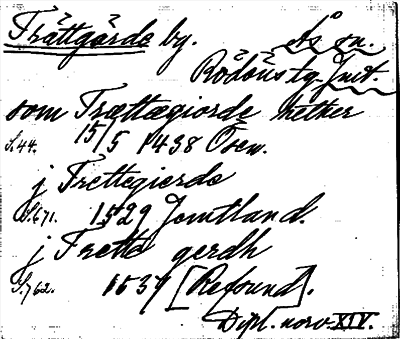 Trättgärde by. Ås sn.
Rödöns tg. Jmt.
som Trættægiorde hether
S. 44. 15/5 1438 Ösen.
j Trettegierde
S. 671. 1529 Jemtland.
j Trette gerdh
S. 762. 1537 [Refsund].
Dipl. norv. XIV.